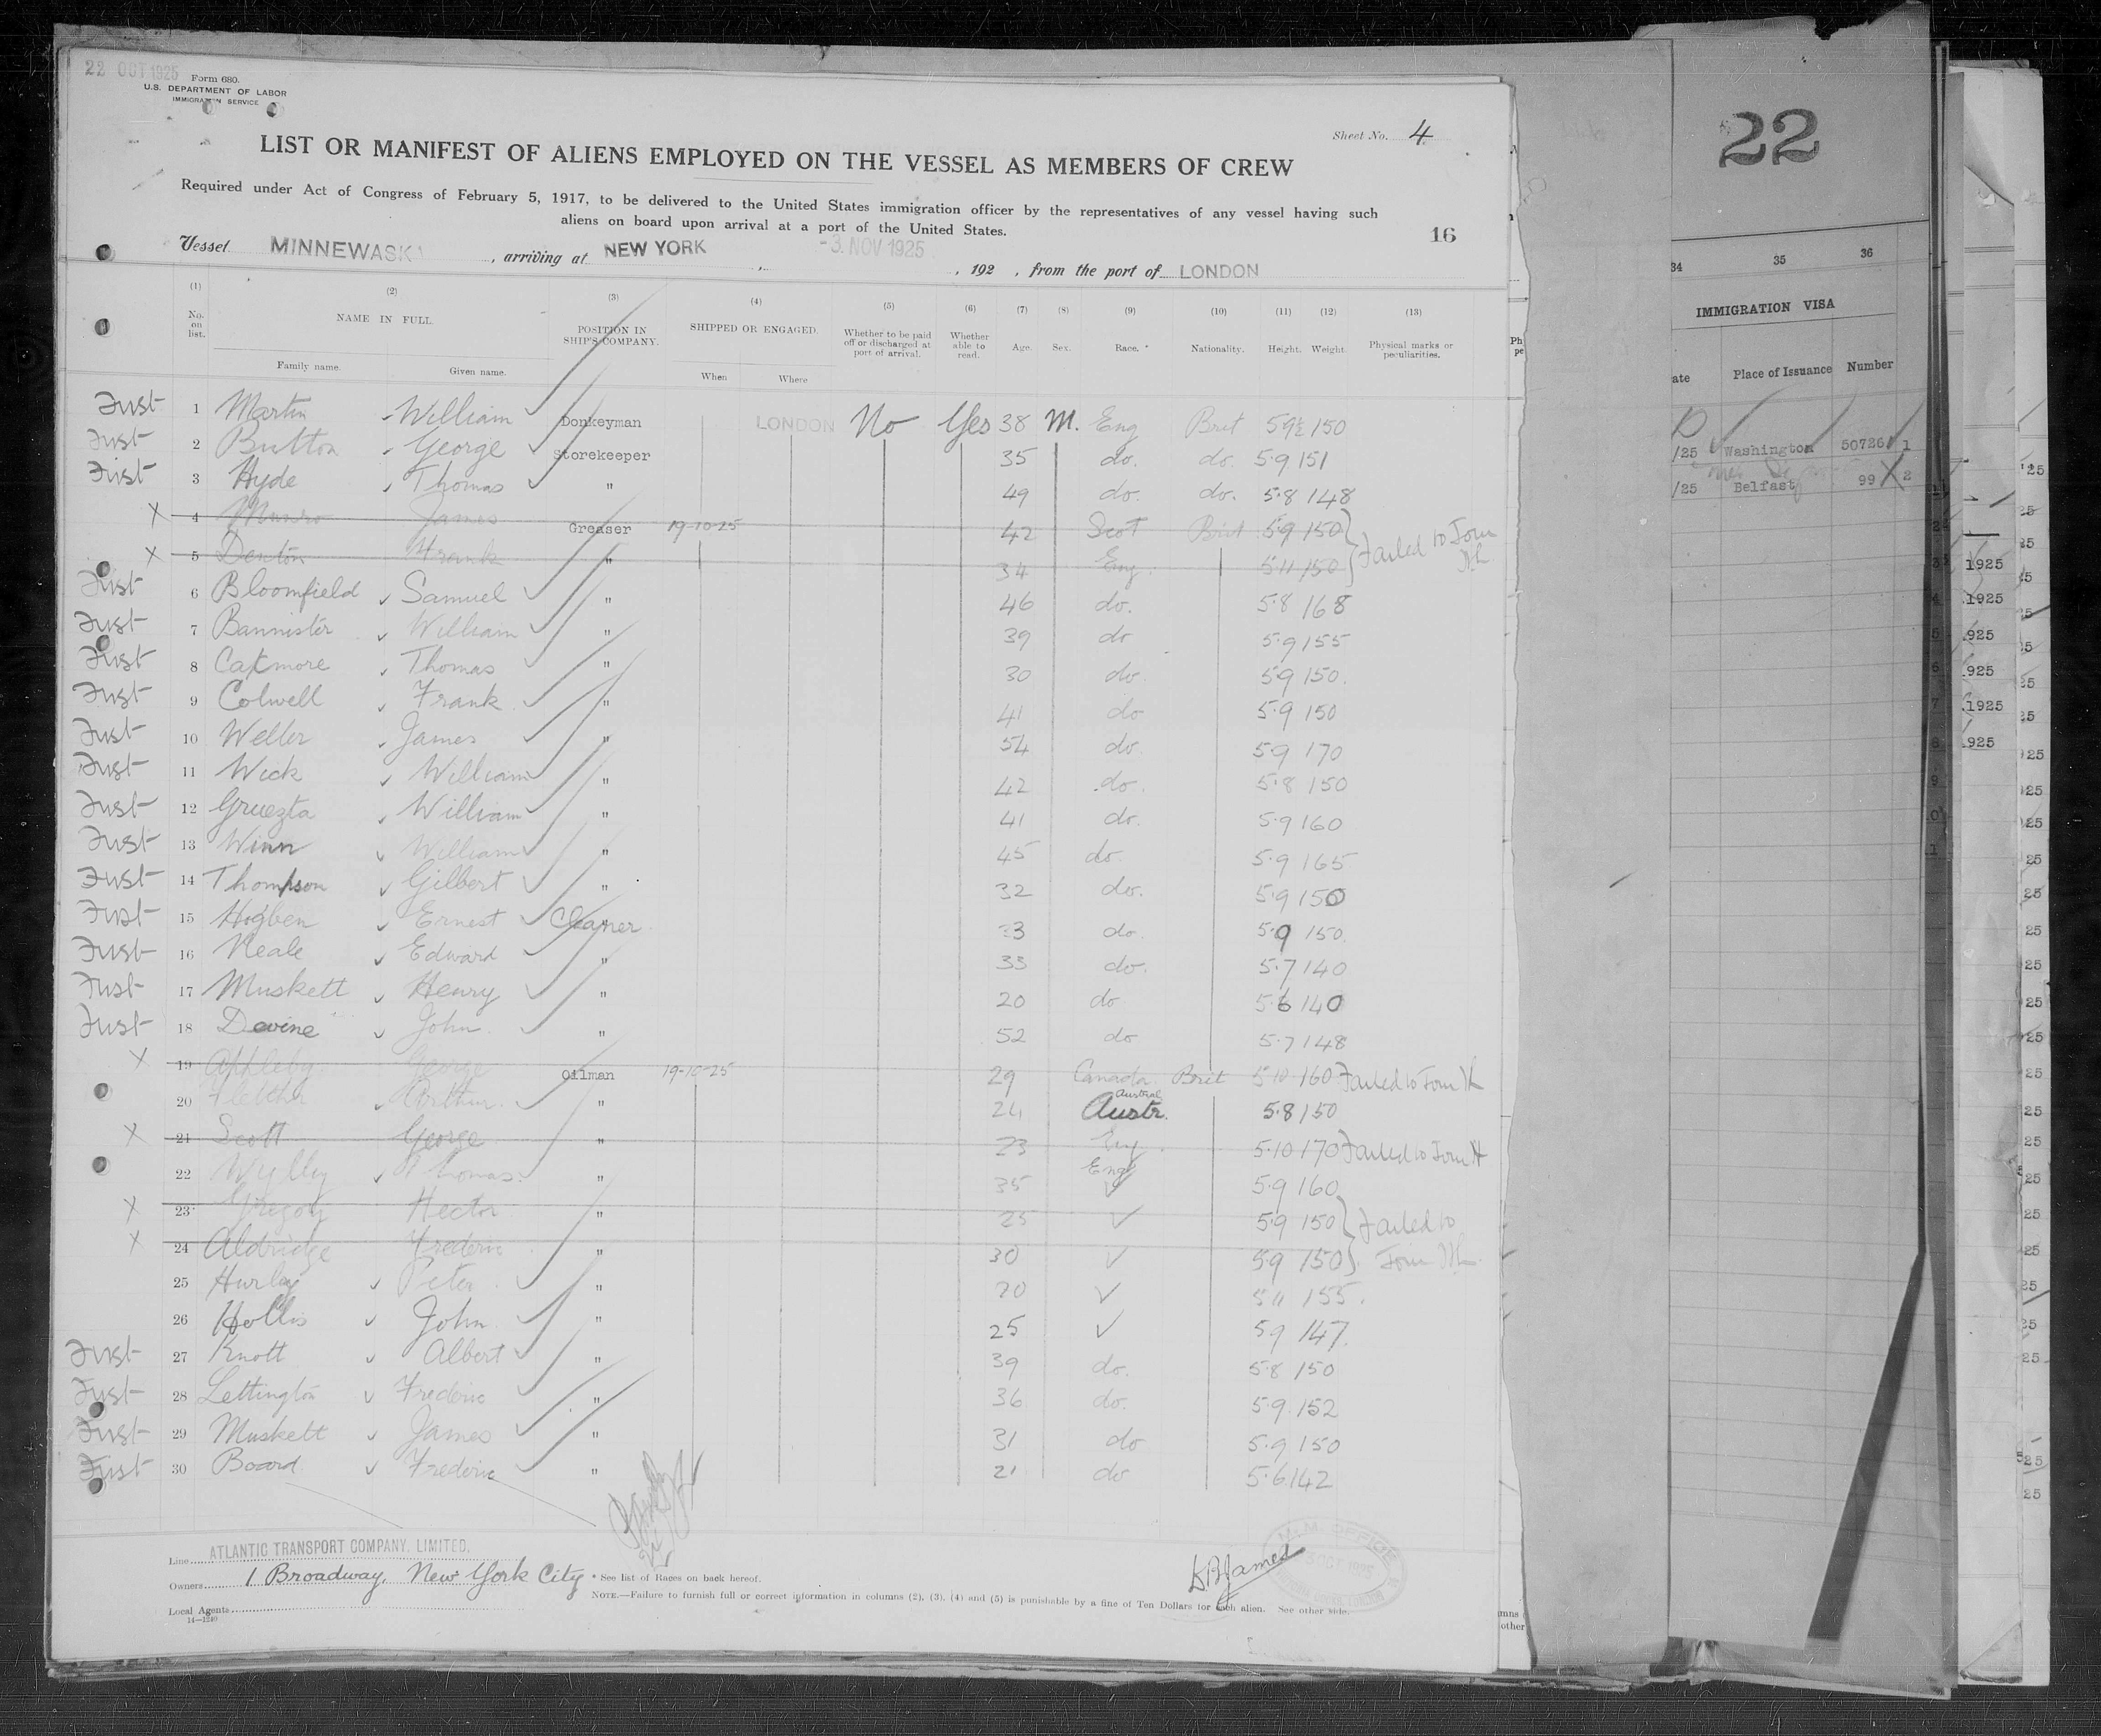 22 OCT 1925
Form 680.
U.S. DEPARTMENT OF LABOR
IMMIGRATION SERVICE
Sheet No. 4
LIST OR MANIFEST OF ALIENS EMPLOYED ON THE VESSEL AS MEMBERS OF CREW
Required under Act of Congress of February 5, 1917, to be delivered to the United States immigration officer by the representatives of any vessel having such
aliens on board upon arrival at a port of the United States.
16
Vessel MINNEWASKA, arriving at NEW YORK, -3. NOV 1925, 192 , from the port of LONDON
(1) (2) (3) (4) (5) (6) (7) (8) (9) (10) (11) (12) (13)
No. on list. NAME IN FULL. POSITION IN SHIP'S COMPANY. SHIPPED OR ENGAGED. Whether to be paid off or discharged at port of arrival. Whether able to read. Age. Sex. Race. * Nationality. Height. Weight. Physical marks or peculiarities.
Family name. Given name. When Where
1 Martin William Donkeyman LONDON No Yes 38 M. Eng Brit 5 9½ 150
2 Button George Storekeeper 35 do. do. 5.9 151
3 Hyde Thomas " 49 do. do. 5.8 148
X 4 Munro James Greaser 19-10-25 42 Scot Brit 5.9 150 } Failed to Join
X 5 Denton Frank " 34 Eng. 5.11 150
6 Bloomfield Samuel " 46 do. 5.8 168
7 Bannister William " 39 do 5.9 155
8 Cakmore Thomas " 30 do. 5.9 150.
9 Colwell Frank " 41 do 5.9 150
10 Weller James " 54 do. 5.9 170
11 Wick William " 42 do. 5.8 150
12 William " 41 do. 5.9 160
13 Winn William " 45 do. 5.9 165
14 Thompson Gilbert " 32 do. 5.9 150
15 Hogben Ernest Cleaner 33 do. 5.9 150.
16 Neale Edward " 33 do. 5.7 140
17 Muskett Henry " 20 do 5.6 140
18 Devine John " 52 do 5.7 148
X 19 Appleby George Oilman 19-10-25 29 Canada Brit 5 10 160 Failed to Join
20 Fletcher Arthur. " 24 Austral Austr. 5.8 150
X 21 Scott George " 23 Eng 5.10 170 Failed to Join
22 Wylly Thomas. " 35 Eng 5.9 160
X 23 Gregory Hector " 25 5.9 150 } Failed to
X 24 Aldridge Frederic " 30 5.9 150 } Join
25 Hurley Peter " 20 5 11 155.
26 Hollis John " 25 5 9 147.
27 Knott Albert " 39 do. 5.8 150
28 Lettington Frederic " 36 do. 5.9. 152
29 Muskett James " 31 do 5.9 150
30 Board Frederic " 21 do 5.6. 142
Line ATLANTIC TRANSPORT COMPANY, LIMITED.
Owners 1 Broadway, New York City
Local Agents
14—1240
* See list of Races on back hereof.
NOTE.—Failure to furnish full or correct information in columns (2), (3), (4) and (5) is punishable by a fine of Ten Dollars for each alien. See other side.
22
34 35 36
IMMIGRATION VISA
Place of Issuance Number
/25 Washington 50726 1
/25 Belfast 99 X 2
1925
1925
925
925
1925
925